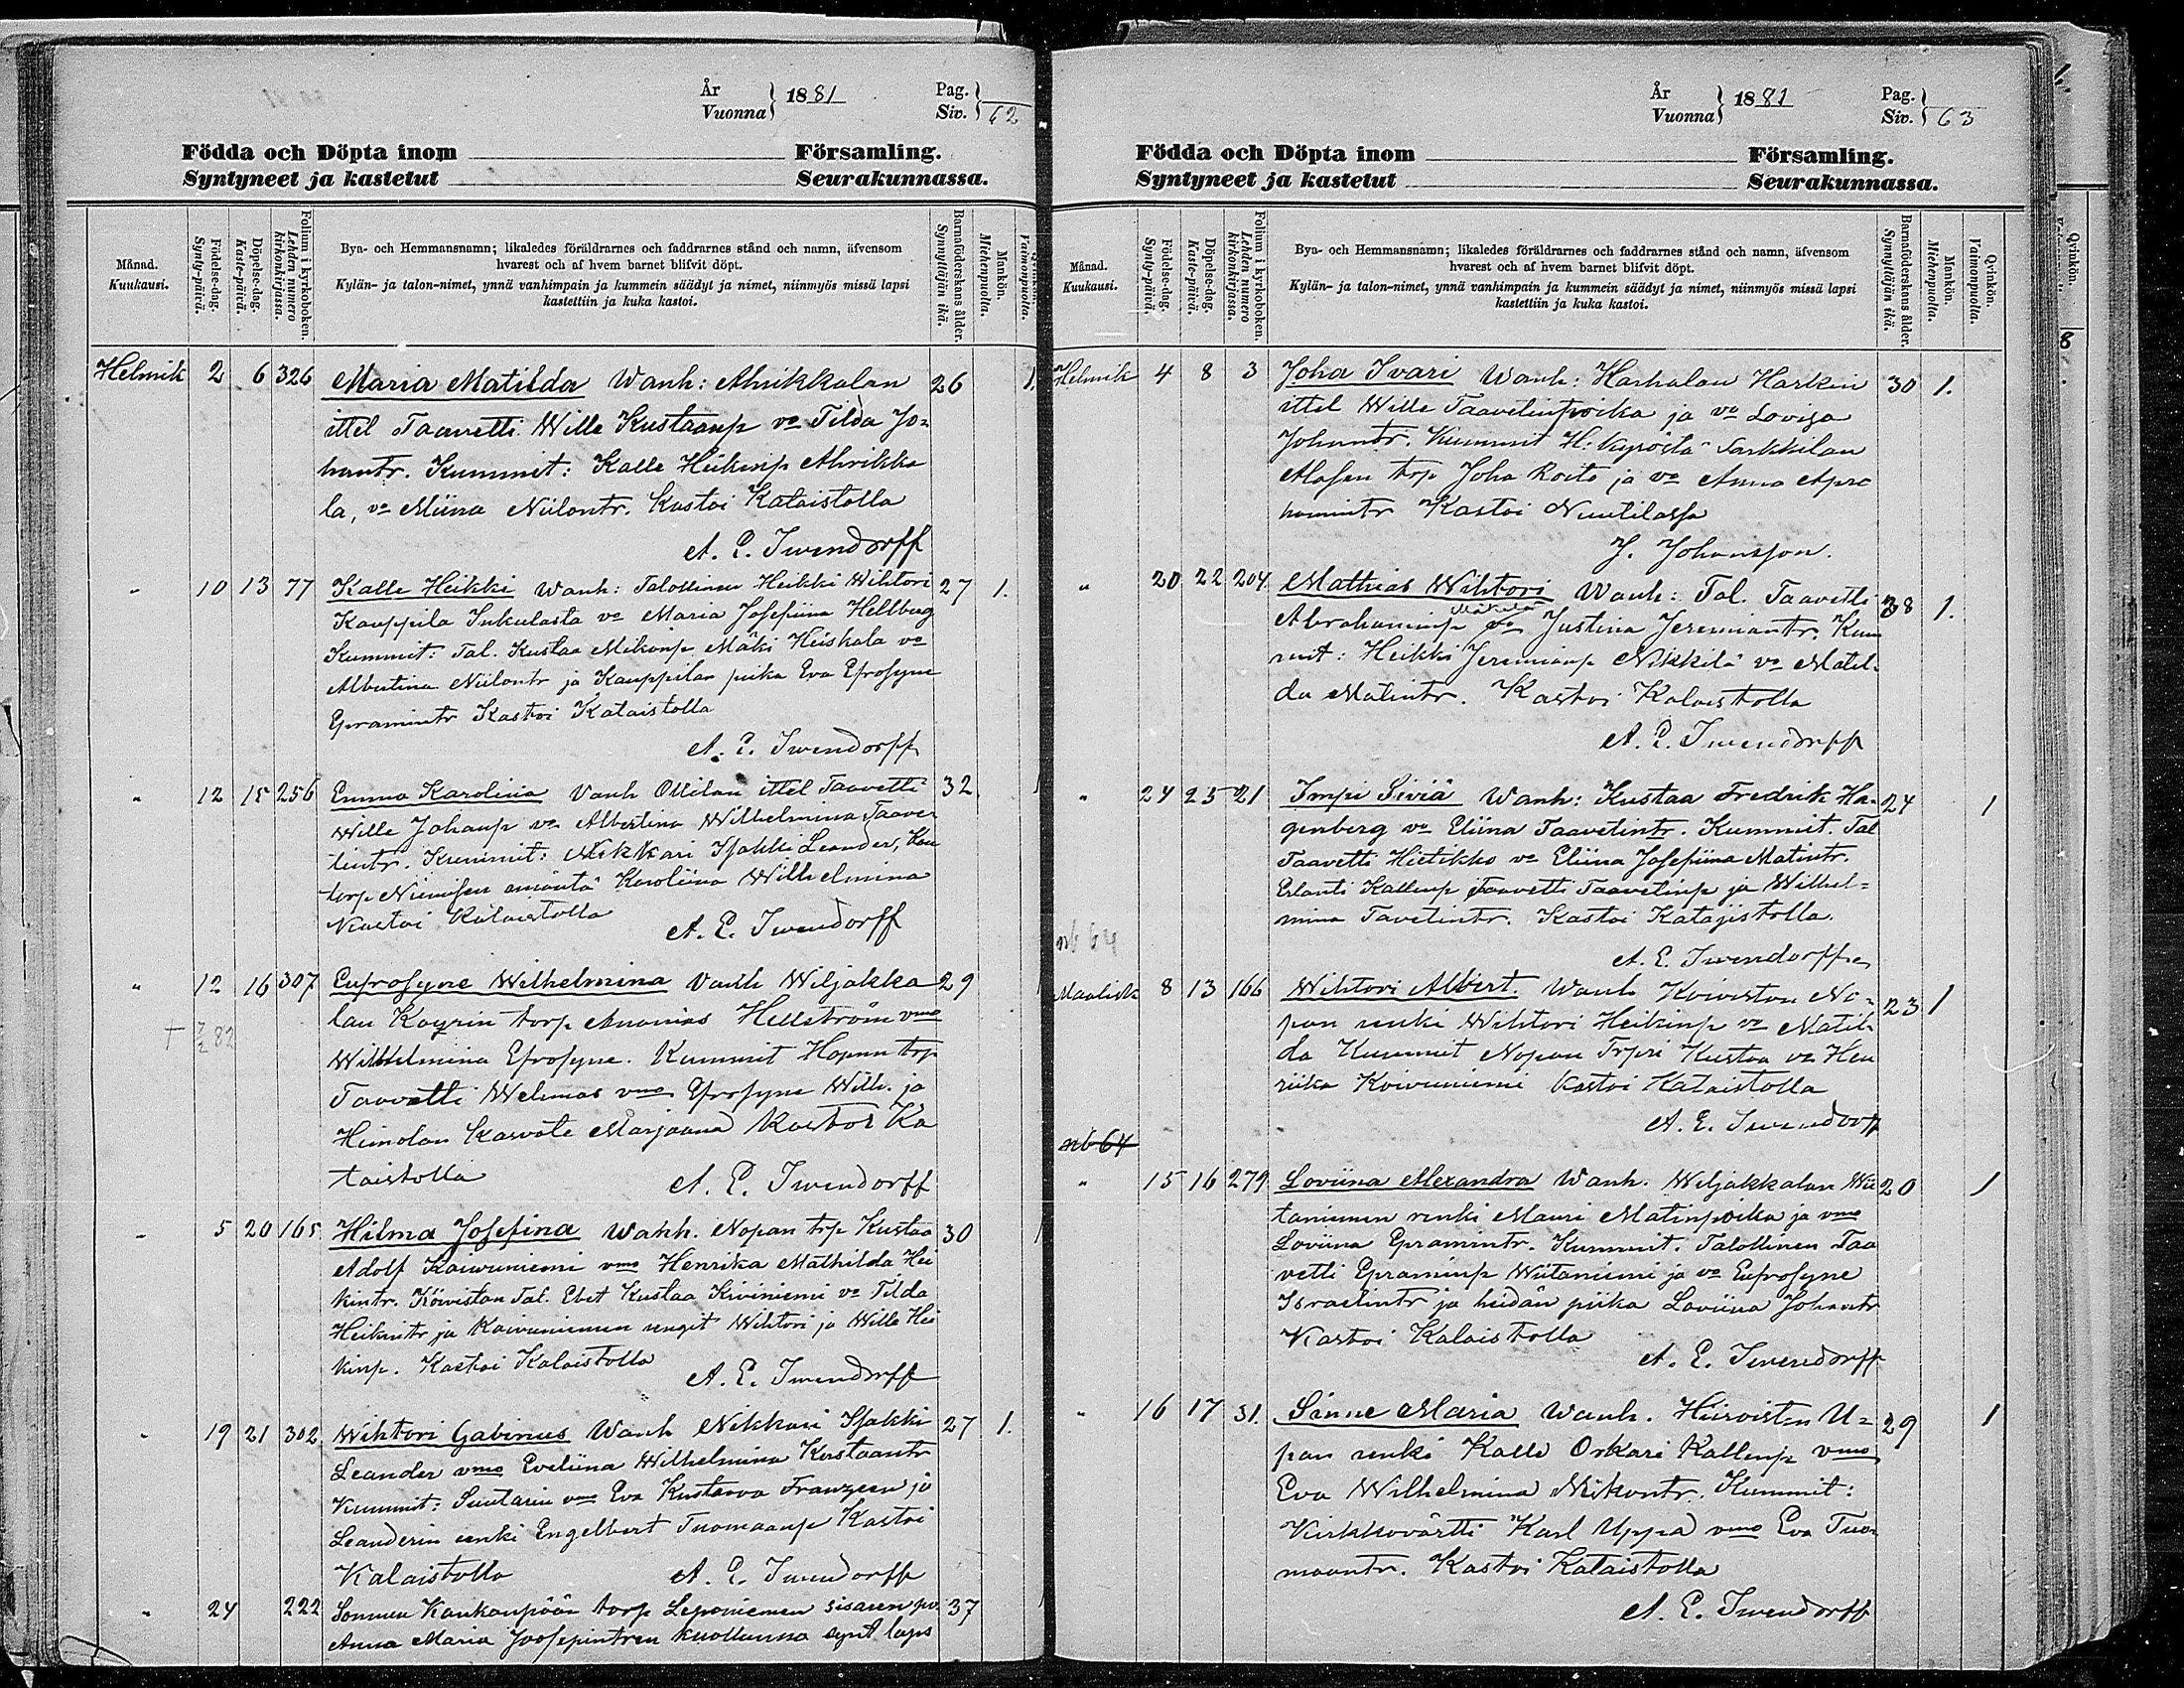 År
Vuonna } 1881 Pag.
Siv. } 62
Födda och Döpta inom Församling.
Syntyneet ja kastetut Seurakunnassa.
Månad.
Kuukausi.
Födelse-dag.
Synty-päivä.
Döpelse-dag.
Kaste-päivä.
Folium i kyrkoboken.
Lehden numero kirkonkirjassa.
Bya- och Hemmansnamn; likaledes föräldrarnes och faddrarnes stånd och namn, äfvensom
hvarest och af hvem barnet blifvit döpt.
Kylän- ja talon-nimet, ynnä vanhimpain ja kummein säädyt ja nimet, niinmyös missä lapsi
kastettiin ja kuka kastoi.
Barnaföderskans ålder.
Synnyttäjän ikä.
Mankön.
Miehenpuolta.
Vaimonpuolta.
Helmik 2 6 326 Maria Matilda Wanh: Ahrikkalan 26 1.
ittel Taavetti Wille Kustaanp vo Tilda Jo-
hantr. Kummit: Kalle Heikinp Ahrikka
la, vo Miina Niilontr. Kastoi Kataistolla
A. E. Iwendorff
" 10 13 77 Kalle Heikki Wanh: Talollinen Heikki Wihtori 27 1.
Kauppila Inkulasta vo Maria Josefiina Hellberg
Kummit: Tal. Kustaa Mikonp Mäki Heiskala vo
Albertina Niilontr ja Kauppilan piika Eva Efrosyne
Epramintr Kastoi Kataistolla
A. E. Iwendorff
" 12 15 256 Emma Karolina Vanh Ollilan ittel Taavetti 32
Wille Johanp vo Albertina Wilhelmina Taave
tintr. Kummit: Nikkari Isakki Leander,
torp Niemisen emäntä Karoliina Wilhelmina
Kastoi Kataistolla
A. E. Iwendorff
" 12 16 307 Eufrosyne Wilhelmina Vanh Wiljakka 29
† 7/2 82
lan Koyrin torp Ananias Hellström vmo
Wilhelmina Efrosyne. Kummit Hopun trp
Taavetti Welmas vmo Efrosyne Wilh. ja
Heinolan Marjaana Kastoi Ka
taistolla
A. E. Iwendorff
" 5 20 165 Hilma Josefina Wanh. Nopan trp Kustaa 30
Adolf Koivuniemi vmo Henrika Mathilda Hei
kintr. Koiviston Tal. Kustaa Kiviniemi vo Tilda
Heikintr ja Koivuniemen rengit Wihtori ja Wille Hei
kinp. Kastoi Kataistolla
A. E. Iwendorff
" 19 21 302 Wihtori Gabinus Wanh Nikkari Isakki 27 1.
Leander vmo Eveliina Wilhelmina Kustaantr
Kummit: Suutarin vmo Eva Kustaava Franzeen ja
Leanderin renki Engelbert Tuomaanp Kastoi
Kataistolla
A. E. Iwendorff
" 24 222 Sommen Kankaapään torp Leponiemen sisaren 37
Anna Maria Joosepintren kuolluna synt laps
År
Vuonna } 1881 Pag.
Siv. } 63
Födda och Döpta inom Församling.
Syntyneet ja kastetut Seurakunnassa.
Månad.
Kuukausi.
Födelse-dag.
Synty-päivä.
Döpelse-dag.
Kaste-päivä.
Folium i kyrkoboken.
Lehden numero kirkonkirjassa.
Bya- och Hemmansnamn; likaledes föräldrarnes och faddrarnes stånd och namn, äfvensom
hvarest och af hvem barnet blifvit döpt.
Kylän- ja talon-nimet, ynnä vanhimpain ja kummein säädyt ja nimet, niinmyös missä lapsi
kastettiin ja kuka kastoi.
Barnaföderskans ålder.
Synnyttäjän ikä.
Mankön.
Miehenpuolta.
Qvinkön.
Vaimonpuolta.
Helmik 4 8 3 Joha Ivari Wanh: Harhalan Harkin 30 1.
ittel Wille Taavetinpoika ja vo Lovisa
Johantr. Kummit H: kyröstä Sarkkilan
Alasen trp Joha Roito ja vo Anna Apra
hamintr Kastoi Nuutilassa
J. Johansson.
" 20 22 204 Mathias Wihtori Wanh: Tal. Taavetti 38 1.
Abrahaminp Mäkelä vo Justina Jeremiantr. Kum
mit: Heikki Jeremianp Nikkilä vo Matil-
da Matintr. Kastoi Kataistolla
A. E. Iwendorff
" 24 25 21 Impi Siviä Wanh: Kustaa Fredrik Ha- 24 1
genberg vo Eliina Taavetintr. Kummit. Tal
Taavetti Hietikko vo Eliina Josefiina Matintr.
Erlanti Kallenp Taavetti Taavetinp ja Wilhel-
mina Tavetintr. Kastoi Katajistolla.
A. E. Iwendorff
nb 64
Maalisk 8 13 166 Wihtori Albert. Wanh Koiviston No- 23 1
pan renki Wihtori Heikinp vo Matil-
da Kummit Nopan Trpri Kustaa vo Hen
riika Koivuniemi Kastoi Kataistolla
A. E. Iwendorff
nb 64
" 15 16 279 Loviina Alexandra Wanh. Wiljakkalan Wii 20 1
taniemen renki Mauri Matinpoika ja vmo
Loviina Epramintr. Kummit. Talollinen Taa
vetti Epraminp Wiitaniemi ja vo Eufrosyne
Israelintr ja heidän piika Loviina Johantr
Kastoi Kataistolla
A. E. Iwendorff
" 16 17 31. Sanne Maria Wanh. Hiirvisten U- 29 1
pan renki Kalle Oskari Kallenp vmo
Eva Wilhelmina Mikontr. Kummit:
Kirkkovärtti Karl Uppa vmo Eva Tuo-
maantr. Kastoi Kataistolla
A. E. Iwendorff
Qvinkön.
8